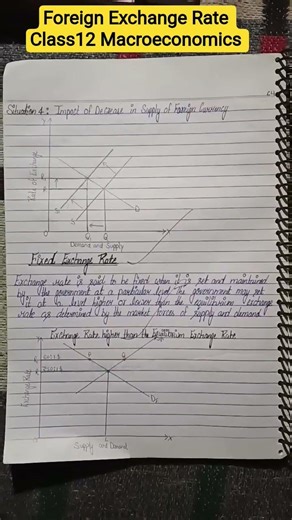 Foreign Exchange Rate
Class12 Macroeconomics
Situation 4: Impact of Decrease in Supply of Foreign Currency
Y
Rate of Exchange
D
Q1 Q
X
Demand and Supply
Fixed Exchange Rate
Exchange rate is said to be fixed when it is set and maintained
by the government at a particular level. The government may set
it at a level higher or lower than the equilibrium exchange
rate as determined by the market forces of supply and demand.
Exchange Rate higher than the Equilibrium Exchange Rate
Exchange Rate
P Q
X
Supply and Demand